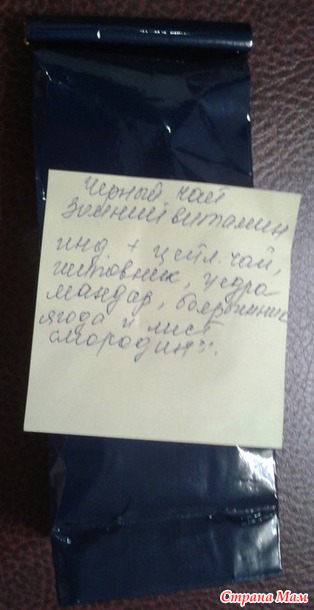 Черный чай
Зимний витамин
инд + цейл. чай,
шиповник, цедра
мандар, боярышник
ягода и лист
смородины.
Страна Мам